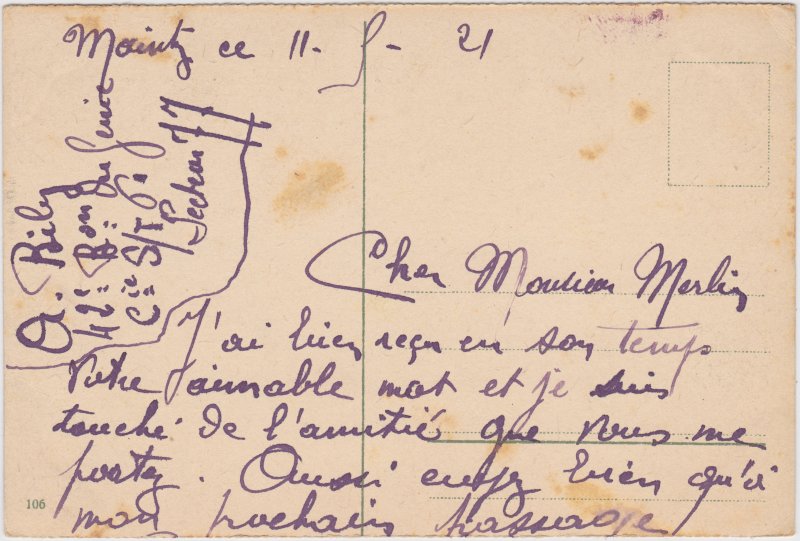 Maintz ce 11 - 5 - 21
A. Biby
42e Bon du Génie
Cie S/T 61
Secteur 77
Cher Monsieur Merlin
J'ai bien reçu en son temps
votre aimable mot et je suis
touché de l'amitié que vous me
portez. Aussi croyez bien qu'à
mon prochain passage
106